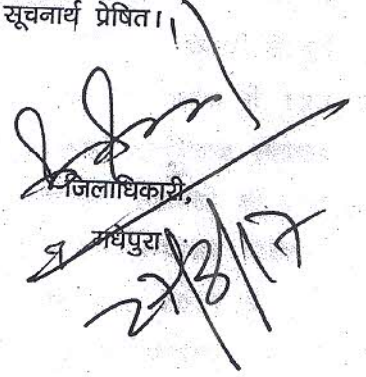 सूचनार्थ प्रेषित।
जिलाधिकारी,
मधेपुरा